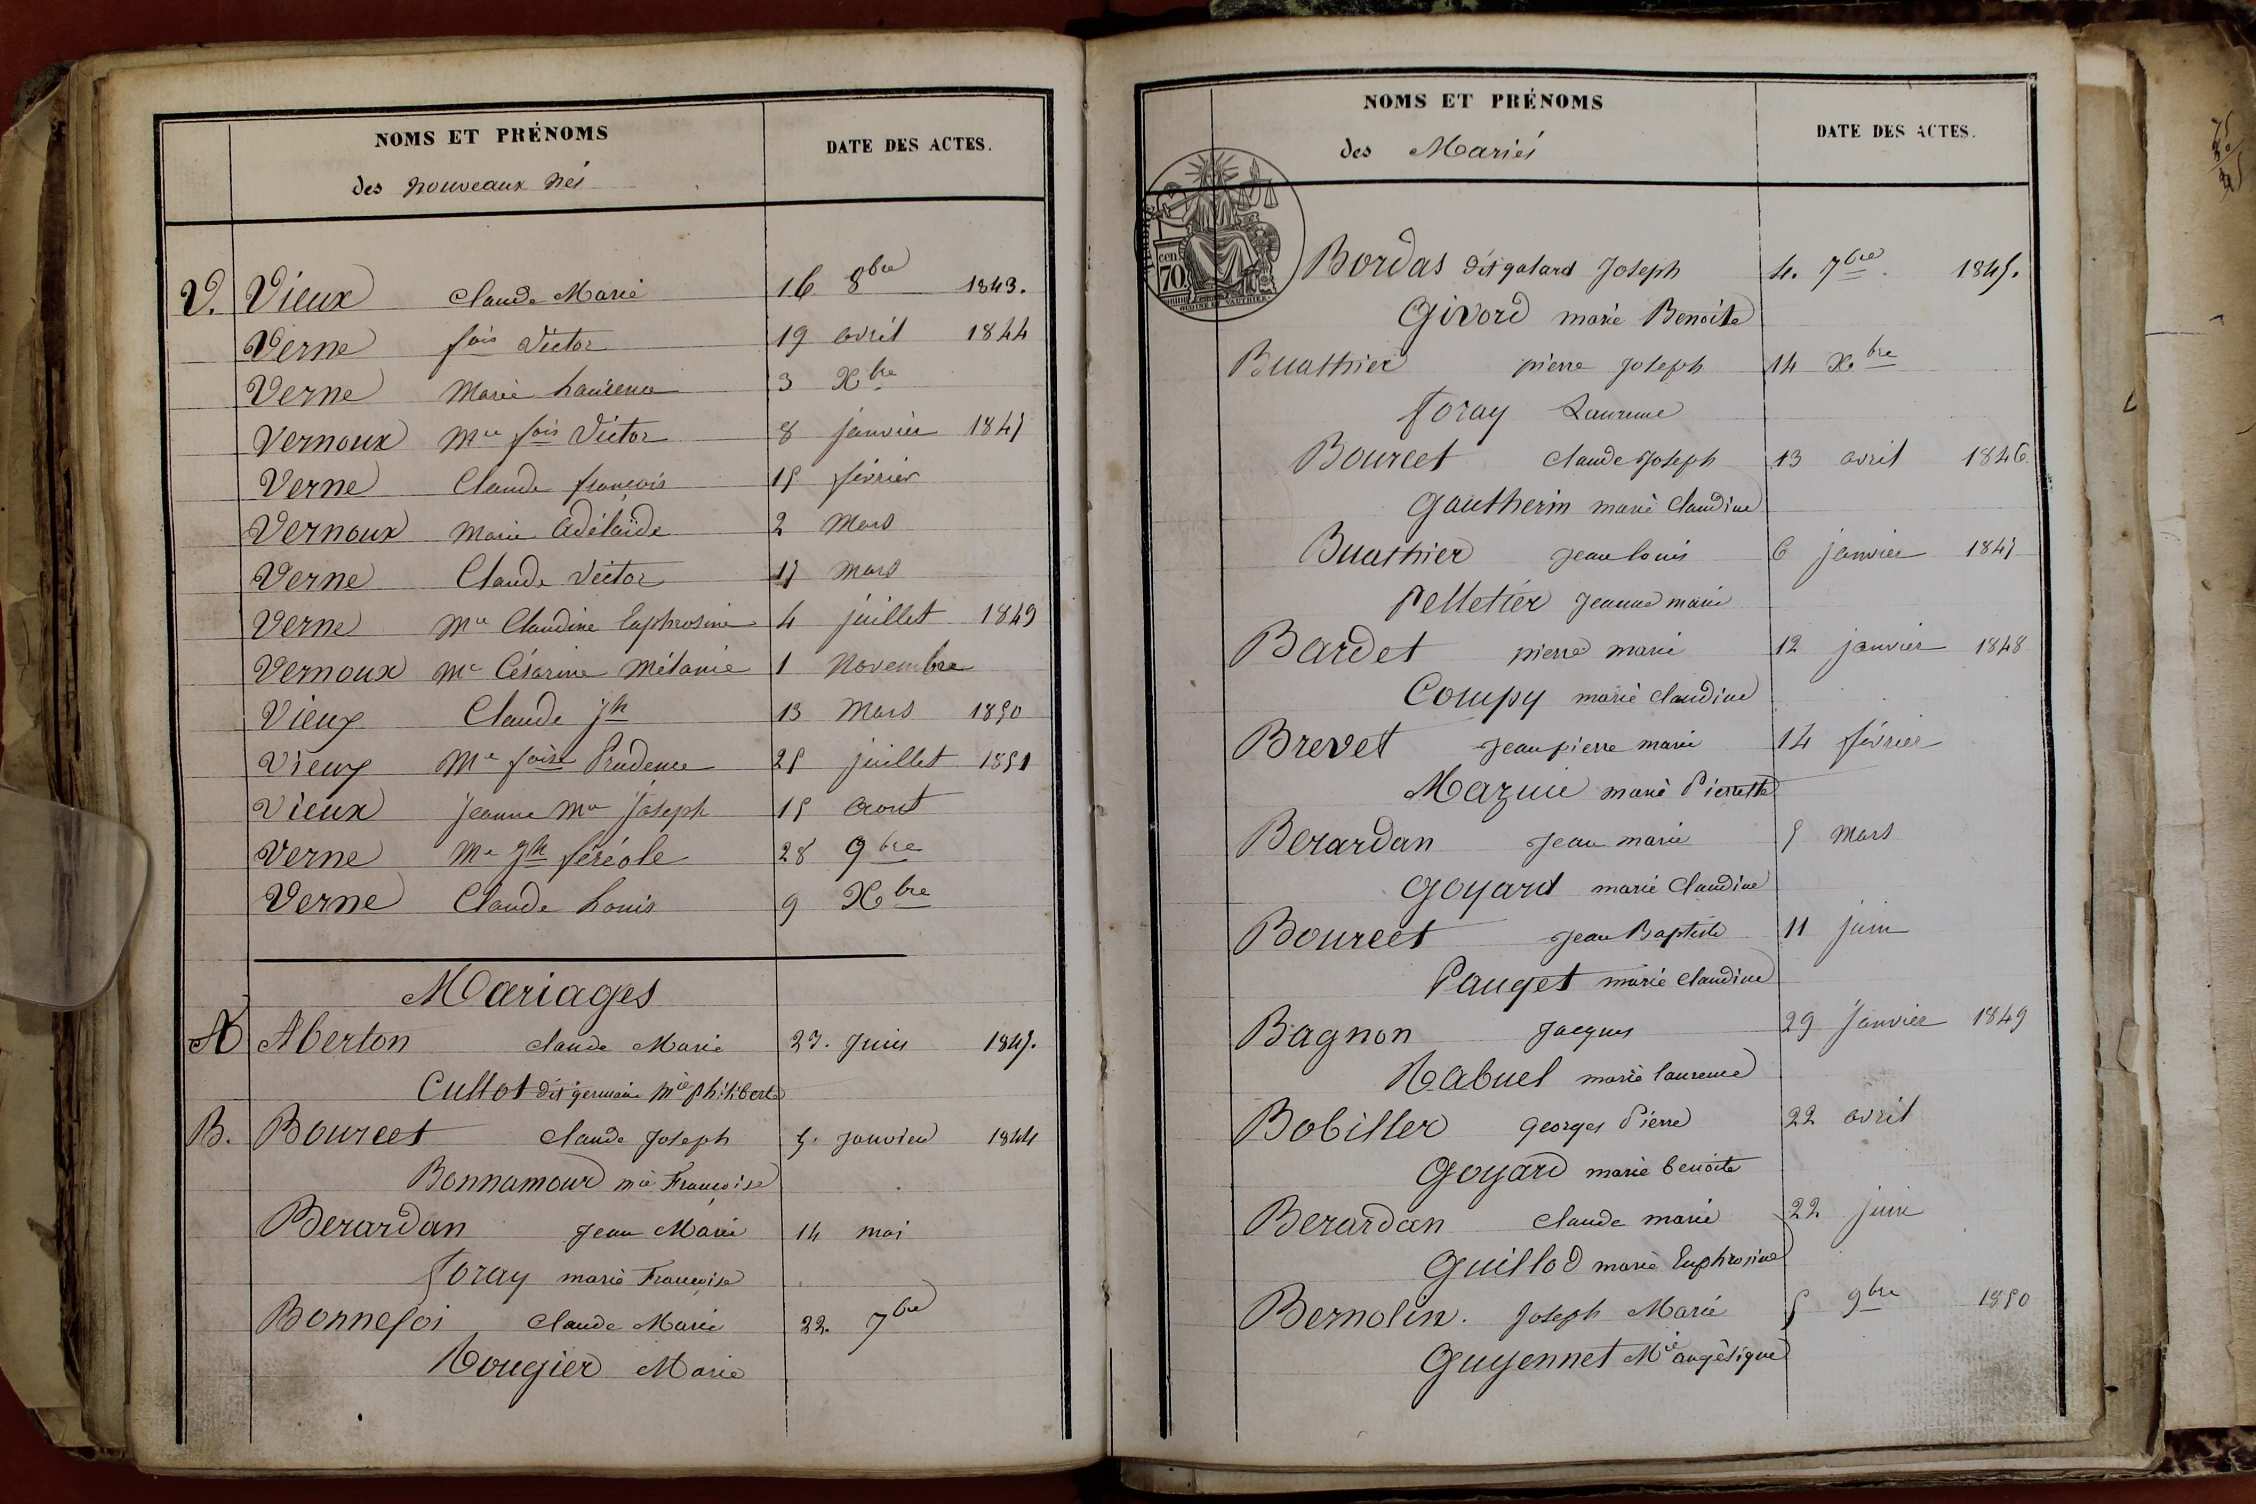 NOMS ET PRÉNOMS
des nouveaux nés
DATE DES ACTES.
V. Vieux Claude Marie 16 8bre 1843.
Verne fois Victor 19 avril 1844
Verne Marie Laurence 3 Xbre
Vernoux Mie fois Victor 8 janvier 1845
Verne Claude françois 15 février
Vernoux Marie Adélaïde 2 Mars
Verne Claude Victor 15 mars
Verne Mie Claudine Euphrosine 4 juillet 1849
Vernoux Me Césarine Mélanie 1 Novembre
Vieux Claude Jh 13 Mars 1850
Vieux Me foise Prudence 25 juillet 1851
Vieux Jeanne Mie Joseph 15 Aout
Verne Me Jh féréole 28 9bre
Verne Claude Louis 9 Xbre
Mariages
A Aberton Claude Marie 23. Juin 1845.
Cullot dit germain Mie philiberte
B. Bourcet Claude Joseph 5. Janvier 1844
Bonnamour mie Françoise
Berardan Jean Marie 14 mai
foray marie Françoise
Bonnefoi Claude Marie 22. 7bre
Rougier Marie
NOMS ET PRÉNOMS
des Mariés
DATE DES ACTES.
cen
70.
Bordas dit galard Joseph 4. 7bre 1845.
Givord marie Benoite
Buathier pierre Joseph 14 Xbre
foray Laurence
Bourcet Claude Joseph 13 avril 1846
Gautherin marie Claudine
Buathier Jean louis 6 janvier 1845
Pelletier Jeanne marie
Bardet pierre marie 12 janvier 1848
Coupy marie claudine
Brevet Jean pierre marie 14 février
Mazuir marie Pierrette
Berardan Jean marie 5 Mars
Goyard marie Claudine
Bourcet Jean Baptiste 11 juin
Pauget marie Claudine
Bagnon Jacques 29 Janvier 1849
Rabuel marie laurence
Bobiller Georges Pierre 22 avril
Goyard marie benoite
Berardan Claude marie 22 juin
Guillod marie Euphrosine
Bernolin. Joseph Marie 5 9bre 1850
Guyennet Mie angélique